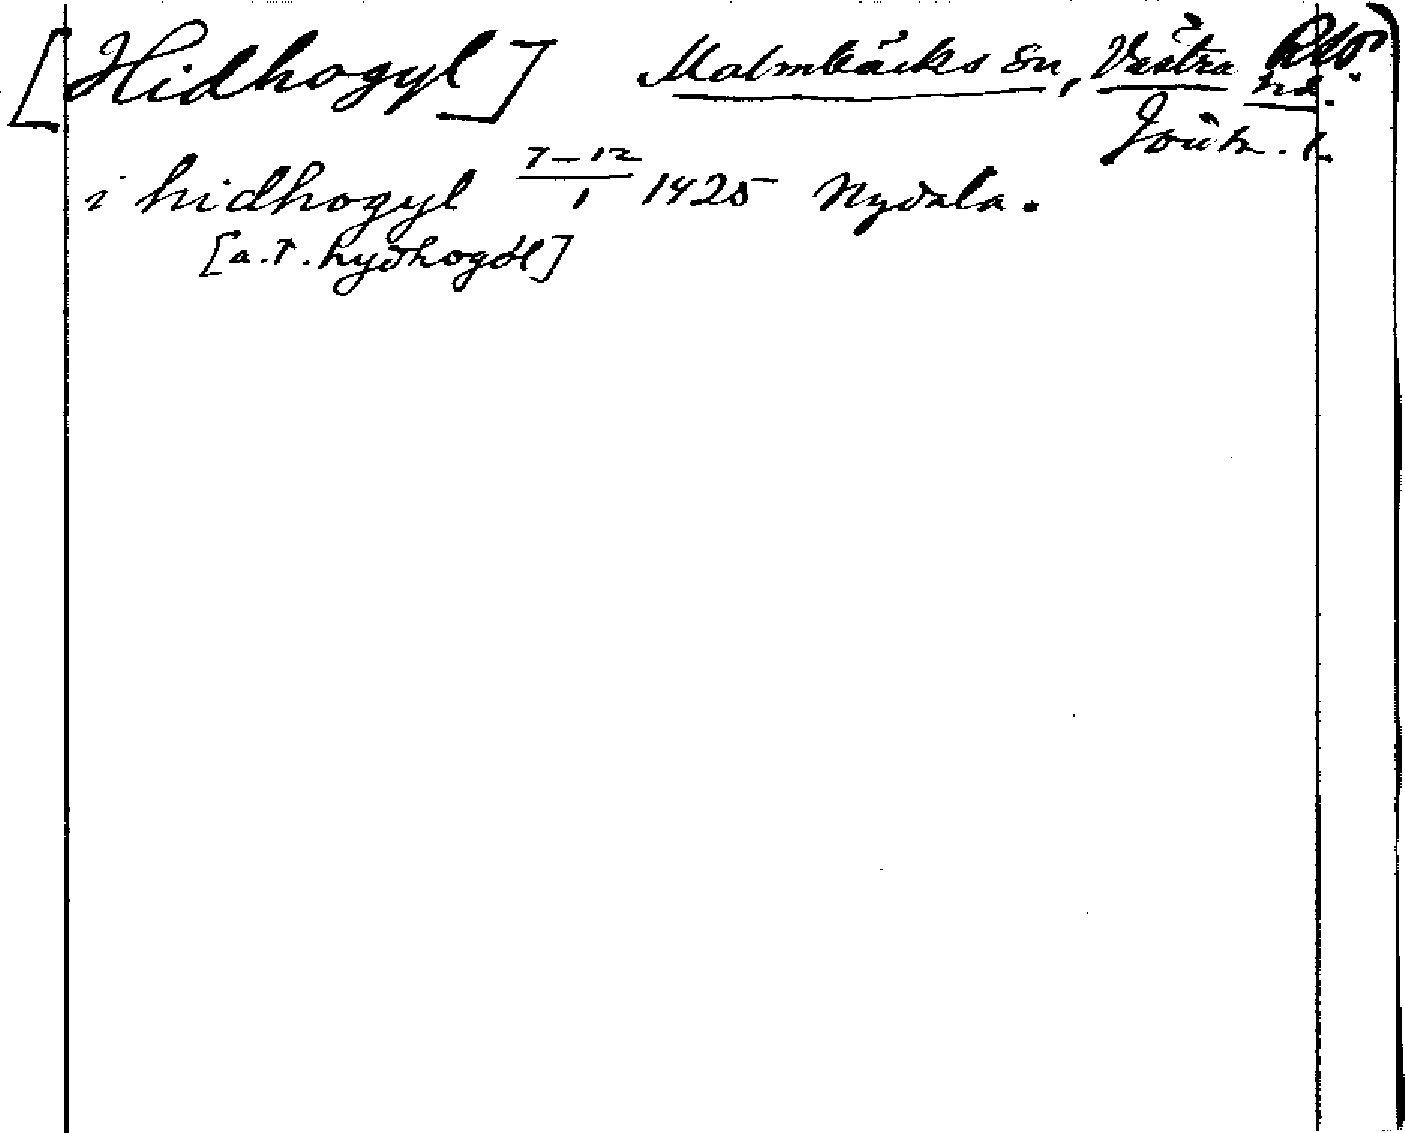 [Hidhogyl] Malmbäcks sn, Västra hd.
Jönk. l.
i hidhogyl 7–12/1 1425 Nydala.
[a.r. hyðhogöl]